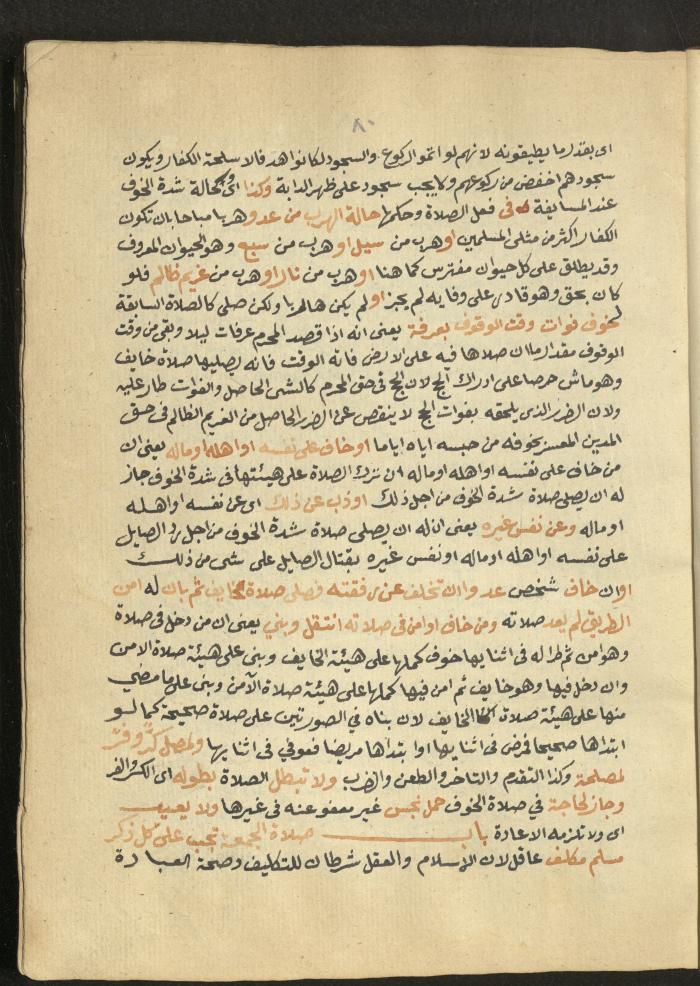 ٨٠
اى بقدر ما يطيقونه لانهم لو اتموا الركوع والسجود لكانوا هدفا لاسلحة الكفار ويكون
سجودهم اخفض من ركوعهم ولا يجب سجود على ظهر الدابة وكذا اى وكحالة شدة الخوف
عند المسايفة فى فعل الصلاة وحكمها حالة الهرب من عدو هربا مباحا بان تكون
الكفار اكثر من مثلى المسلمين او هرب من سيل او هرب من سبع وهو الحيوان المعروف
وقد يطلق على كل حيوان مفترس كما هنا او هرب من نار او هرب من غريم ظالم فلو
كان بحق وهو قادر على وفايه لم يجز او لم يكن هاربا ولكن صلى كالصلاة السابقة
لخوف فوات وقت الوقوف بعرفة يعنى انه اذا قصد المحرم عرفات ليلا وبقى من وقت
الوقوف مقدار ما ان صلاها فيه على الارض فاته الوقت فانه يصليها صلاة خايف
وهو ماش حرصا على ادراك الحج لان الحج فى حق المحرم كالشى الحاصل والفوات طار عليه
ولان الضرر الذى يلحقه بفوات الحج لا ينقص عن الضرر الحاصل من الغريم الظالم فى حق
المدين المعسر بخوفه من حبسه اياه اياما او خاف على نفسه او اهله او ماله يعنى ان
من خاف على نفسه او اهله او ماله ان ترك الصلاة على هيئتها فى شدة الخوف جاز
له ان يصلى صلاة شدة الخوف من اجل ذلك او ذب عن ذلك اى عن نفسه او اهله
او ماله وعن نفس غيره يعنى ان له ان يصلى صلاة شدة الخوف من اجل رد الصايل
على نفسه او اهله او ماله او نفس غيره بقتال الصايل على شى من ذلك
او ان خاف شخص عدوا ان تخلف عن رفقته فصلى صلاة خايف ثم بان له امن
الطريق لم يعد صلاته ومن خاف او امن فى صلاته انتقل وبنى يعنى ان من دخل فى صلاة
وهو امن ثم طرا له فى اثنايها خوف كملها على هيئة الخايف وبنى على هيئة صلاة الامن
وان دخل فيها وهو خايف ثم امن فيها كملها على هيئة صلاة الآمن وبنى على ما مضى
منها على هيئة صلاة الخايف لان بناه في الصورتين على صلاة صحيحة كما لو
ابتداها صحيحا فمرض فى اثنايها او ابتداها مريضا فعوفي فى اثنايها ولمصل كرٌ وفرٌ
لمصلحة وكذا التقدم والتاخر والطعن والضرب ولا تبطل الصلاة بطوله اى الكر والفر
وجاز لحاجة في صلاة الخوف حمل نجس غير معفو عنه فى غيرها ولا يعيد
اى ولا تلزمه الاعادة باب صلاة الجمعة تجب على كل ذكر
مسلم مكلف عاقل لان الاسلام والعقل شرطان للتكليف وصحة العبادة